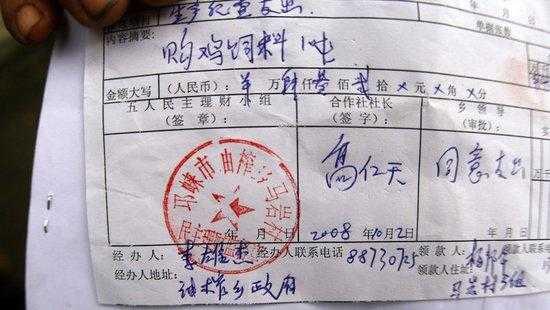 生产
内容摘要：
年 月 日
单据张数
购鸡饲料1吨
金额大写 （人民币）：羊 万 肆 仟 叁 佰 贰 拾 × 元 × 角 × 分
五人民主理财小组
（签 章）：
合作社社长
（签 字）：
乡 领 导
（审批）：
邛崃市油榨乡马岩村
高仁天
同意支出
年 月 日
2008年10月2日
年 月 日
经 办 人：李雄杰 经办人联系电话 88730725 领 款 人：
经办人地址：油榨乡政府 领款人住址：马岩村5组